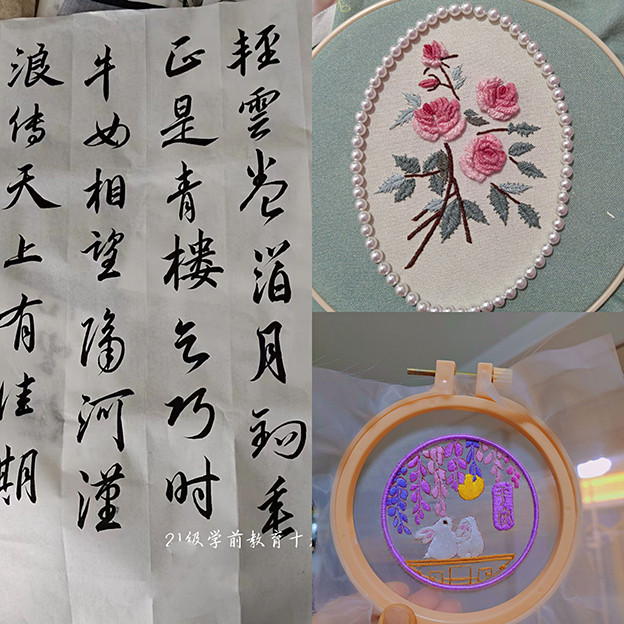 輕雲卷箔月鉤垂
正是青樓乞巧时
牛女相望隔河漢
浪传天上有佳期
21级学前教育十